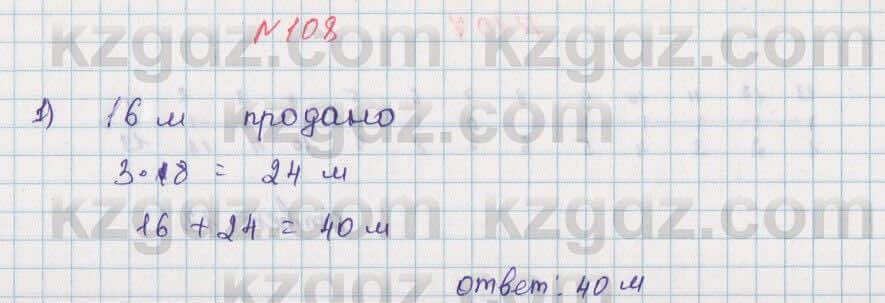 №108
1) 16 м продано
3·18 = 24 м
16 + 24 = 40 м
ответ: 40 м
kzgdz.com kzgdz.com
kzgdz.com
kzgdz.com kzgdz.com
kzgdz.com